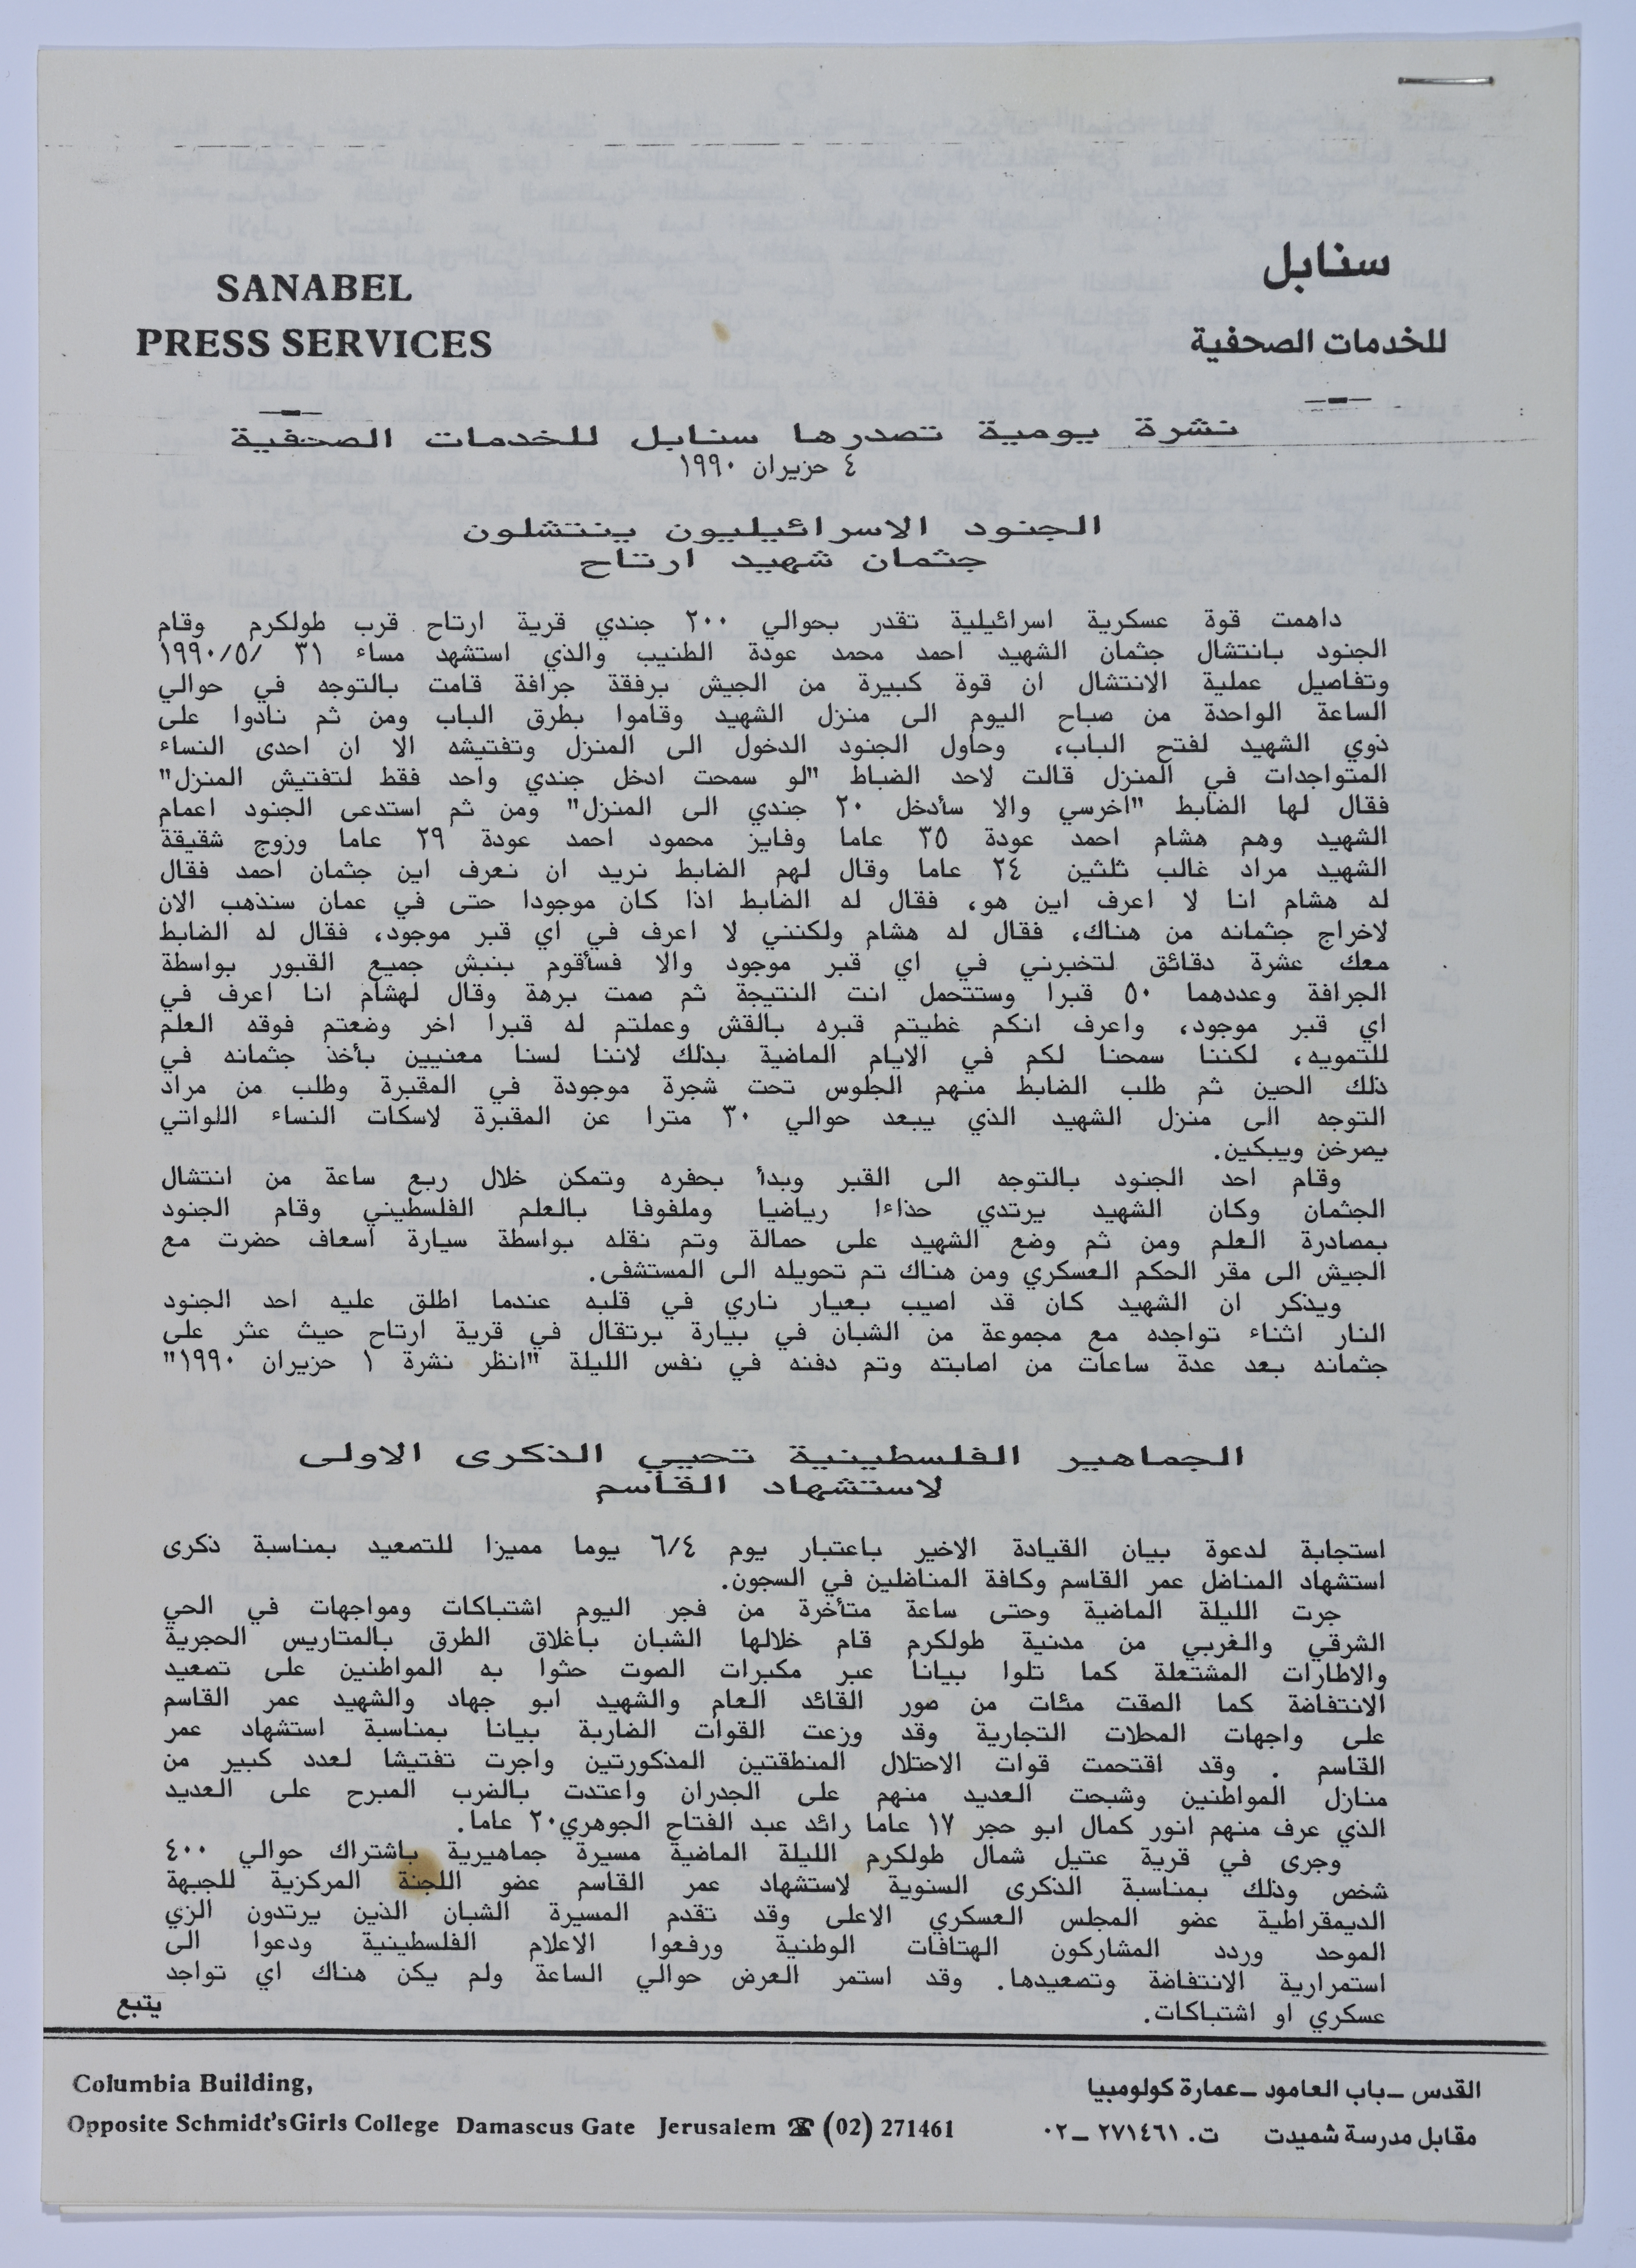 سنابل
للخدمات الصحفية
SANABEL
PRESS SERVICES
نشرة يومية تصدرها سنابل للخدمات الصحفية
٤ حزيران ١٩٩٠
الجنود الاسرائيليون ينتشلون
جثمان شهيد ارتاح
داهمت قوة عسكرية اسرائيلية تقدر بحوالي ٢٠٠ جندي قرية ارتاح قرب طولكرم وقام
الجنود بانتشال جثمان الشهيد احمد محمد عودة الطنيب والذي استشهد مساء ٣١ /١٩٩٠/٥
وتفاصيل عملية الانتشال ان قوة كبيرة من الجيش برفقة جرافة قامت بالتوجه في حوالي
الساعة الواحدة من صباح اليوم الى منزل الشهيد وقاموا بطرق الباب ومن ثم نادوا على
ذوي الشهيد لفتح الباب، وحاول الجنود الدخول الى المنزل وتفتيشه الا ان احدى النساء
المتواجدات في المنزل قالت لاحد الضباط "لو سمحت ادخل جندي واحد فقط لتفتيش المنزل"
فقال لها الضابط "اخرسي والا سأدخل ٢٠ جندي الى المنزل" ومن ثم استدعى الجنود اعمام
الشهيد وهم هشام احمد عودة ٣٥ عاما وفايز محمود احمد عودة ٢٩ عاما وزوج شقيقة
الشهيد مراد غالب ثلثين ٢٤ عاما وقال لهم الضابط نريد ان نعرف اين جثمان احمد فقال
له هشام انا لا اعرف اين هو، فقال له الضابط اذا كان موجودا حتى في عمان سنذهب الان
لاخراج جثمانه من هناك، فقال له هشام ولكنني لا اعرف في اي قبر موجود، فقال له الضابط
معك عشرة دقائق لتخبرني في اي قبر موجود والا فسأقوم بنبش جميع القبور بواسطة
الجرافة وعددهما ٥٠ قبرا وستتحمل انت النتيجة ثم صمت برهة وقال لهشام انا اعرف في
اي قبر موجود، واعرف انكم غطيتم قبره بالقش وعملتم له قبرا اخر وضعتم فوقه العلم
للتمويه، لكننا سمحنا لكم في الايام الماضية بذلك لاننا لسنا معنيين بأخذ جثمانه في
ذلك الحين ثم طلب الضابط منهم الجلوس تحت شجرة موجودة في المقبرة وطلب من مراد
التوجه الى منزل الشهيد الذي يبعد حوالي ٣٠ مترا عن المقبرة لاسكات النساء اللواتي
يصرخن ويبكين.
وقام احد الجنود بالتوجه الى القبر وبدأ بحفره وتمكن خلال ربع ساعة من انتشال
الجثمان وكان الشهيد يرتدي حذاءا رياضيا وملفوفا بالعلم الفلسطيني وقام الجنود
بمصادرة العلم ومن ثم وضع الشهيد على حمالة وتم نقله بواسطة سيارة اسعاف حضرت مع
الجيش الى مقر الحكم العسكري ومن هناك تم تحويله الى المستشفى.
ويذكر ان الشهيد كان قد اصيب بعيار ناري في قلبه عندما اطلق عليه احد الجنود
النار اثناء تواجده مع مجموعة من الشبان في بيارة برتقال في قرية ارتاح حيث عثر على
جثمانه بعد عدة ساعات من اصابته وتم دفنه في نفس الليلة "انظر نشرة ١ حزيران ١٩٩٠"
الجماهير الفلسطينية تحيي الذكرى الاولى
لاستشهاد القاسم
استجابة لدعوة بيان القيادة الاخير باعتبار يوم ٦/٤ يوما مميزا للتصعيد بمناسبة ذكرى
استشهاد المناضل عمر القاسم وكافة المناضلين في السجون.
جرت الليلة الماضية وحتى ساعة متأخرة من فجر اليوم اشتباكات ومواجهات في الحي
الشرقي والغربي من مدنية طولكرم قام خلالها الشبان باغلاق الطرق بالمتاريس الحجرية
والاطارات المشتعلة كما تلوا بيانا عبر مكبرات الصوت حثوا به المواطنين على تصعيد
الانتفاضة كما الصقت مئات من صور القائد العام والشهيد ابو جهاد والشهيد عمر القاسم
على واجهات المحلات التجارية وقد وزعت القوات الضاربة بيانا بمناسبة استشهاد عمر
القاسم . وقد اقتحمت قوات الاحتلال المنطقتين المذكورتين واجرت تفتيشا لعدد كبير من
منازل المواطنين وشبحت العديد منهم على الجدران واعتدت بالضرب المبرح على العديد
الذي عرف منهم انور كمال ابو حجر ١٧ عاما رائد عبد الفتاح الجوهري٢٠ عاما.
وجرى في قرية عتيل شمال طولكرم الليلة الماضية مسيرة جماهيرية باشتراك حوالي ٤٠٠
شخص وذلك بمناسبة الذكرى السنوية لاستشهاد عمر القاسم عضو اللجنة المركزية للجبهة
الديمقراطية عضو المجلس العسكري الاعلى وقد تقدم المسيرة الشبان الذين يرتدون الزي
الموحد وردد المشاركون الهتافات الوطنية ورفعوا الاعلام الفلسطينية ودعوا الى
استمرارية الانتفاضة وتصعيدها. وقد استمر العرض حوالي الساعة ولم يكن هناك اي تواجد
عسكري او اشتباكات.
يتبع
القدس ــ باب العامود ــ عمارة كولومبيا
مقابل مدرسة شميدت ت. ٢٧١٤٦١ ــ ٠٢
Columbia Building,
Opposite Schmidt's Girls College Damascus Gate Jerusalem ☎ (02) 271461